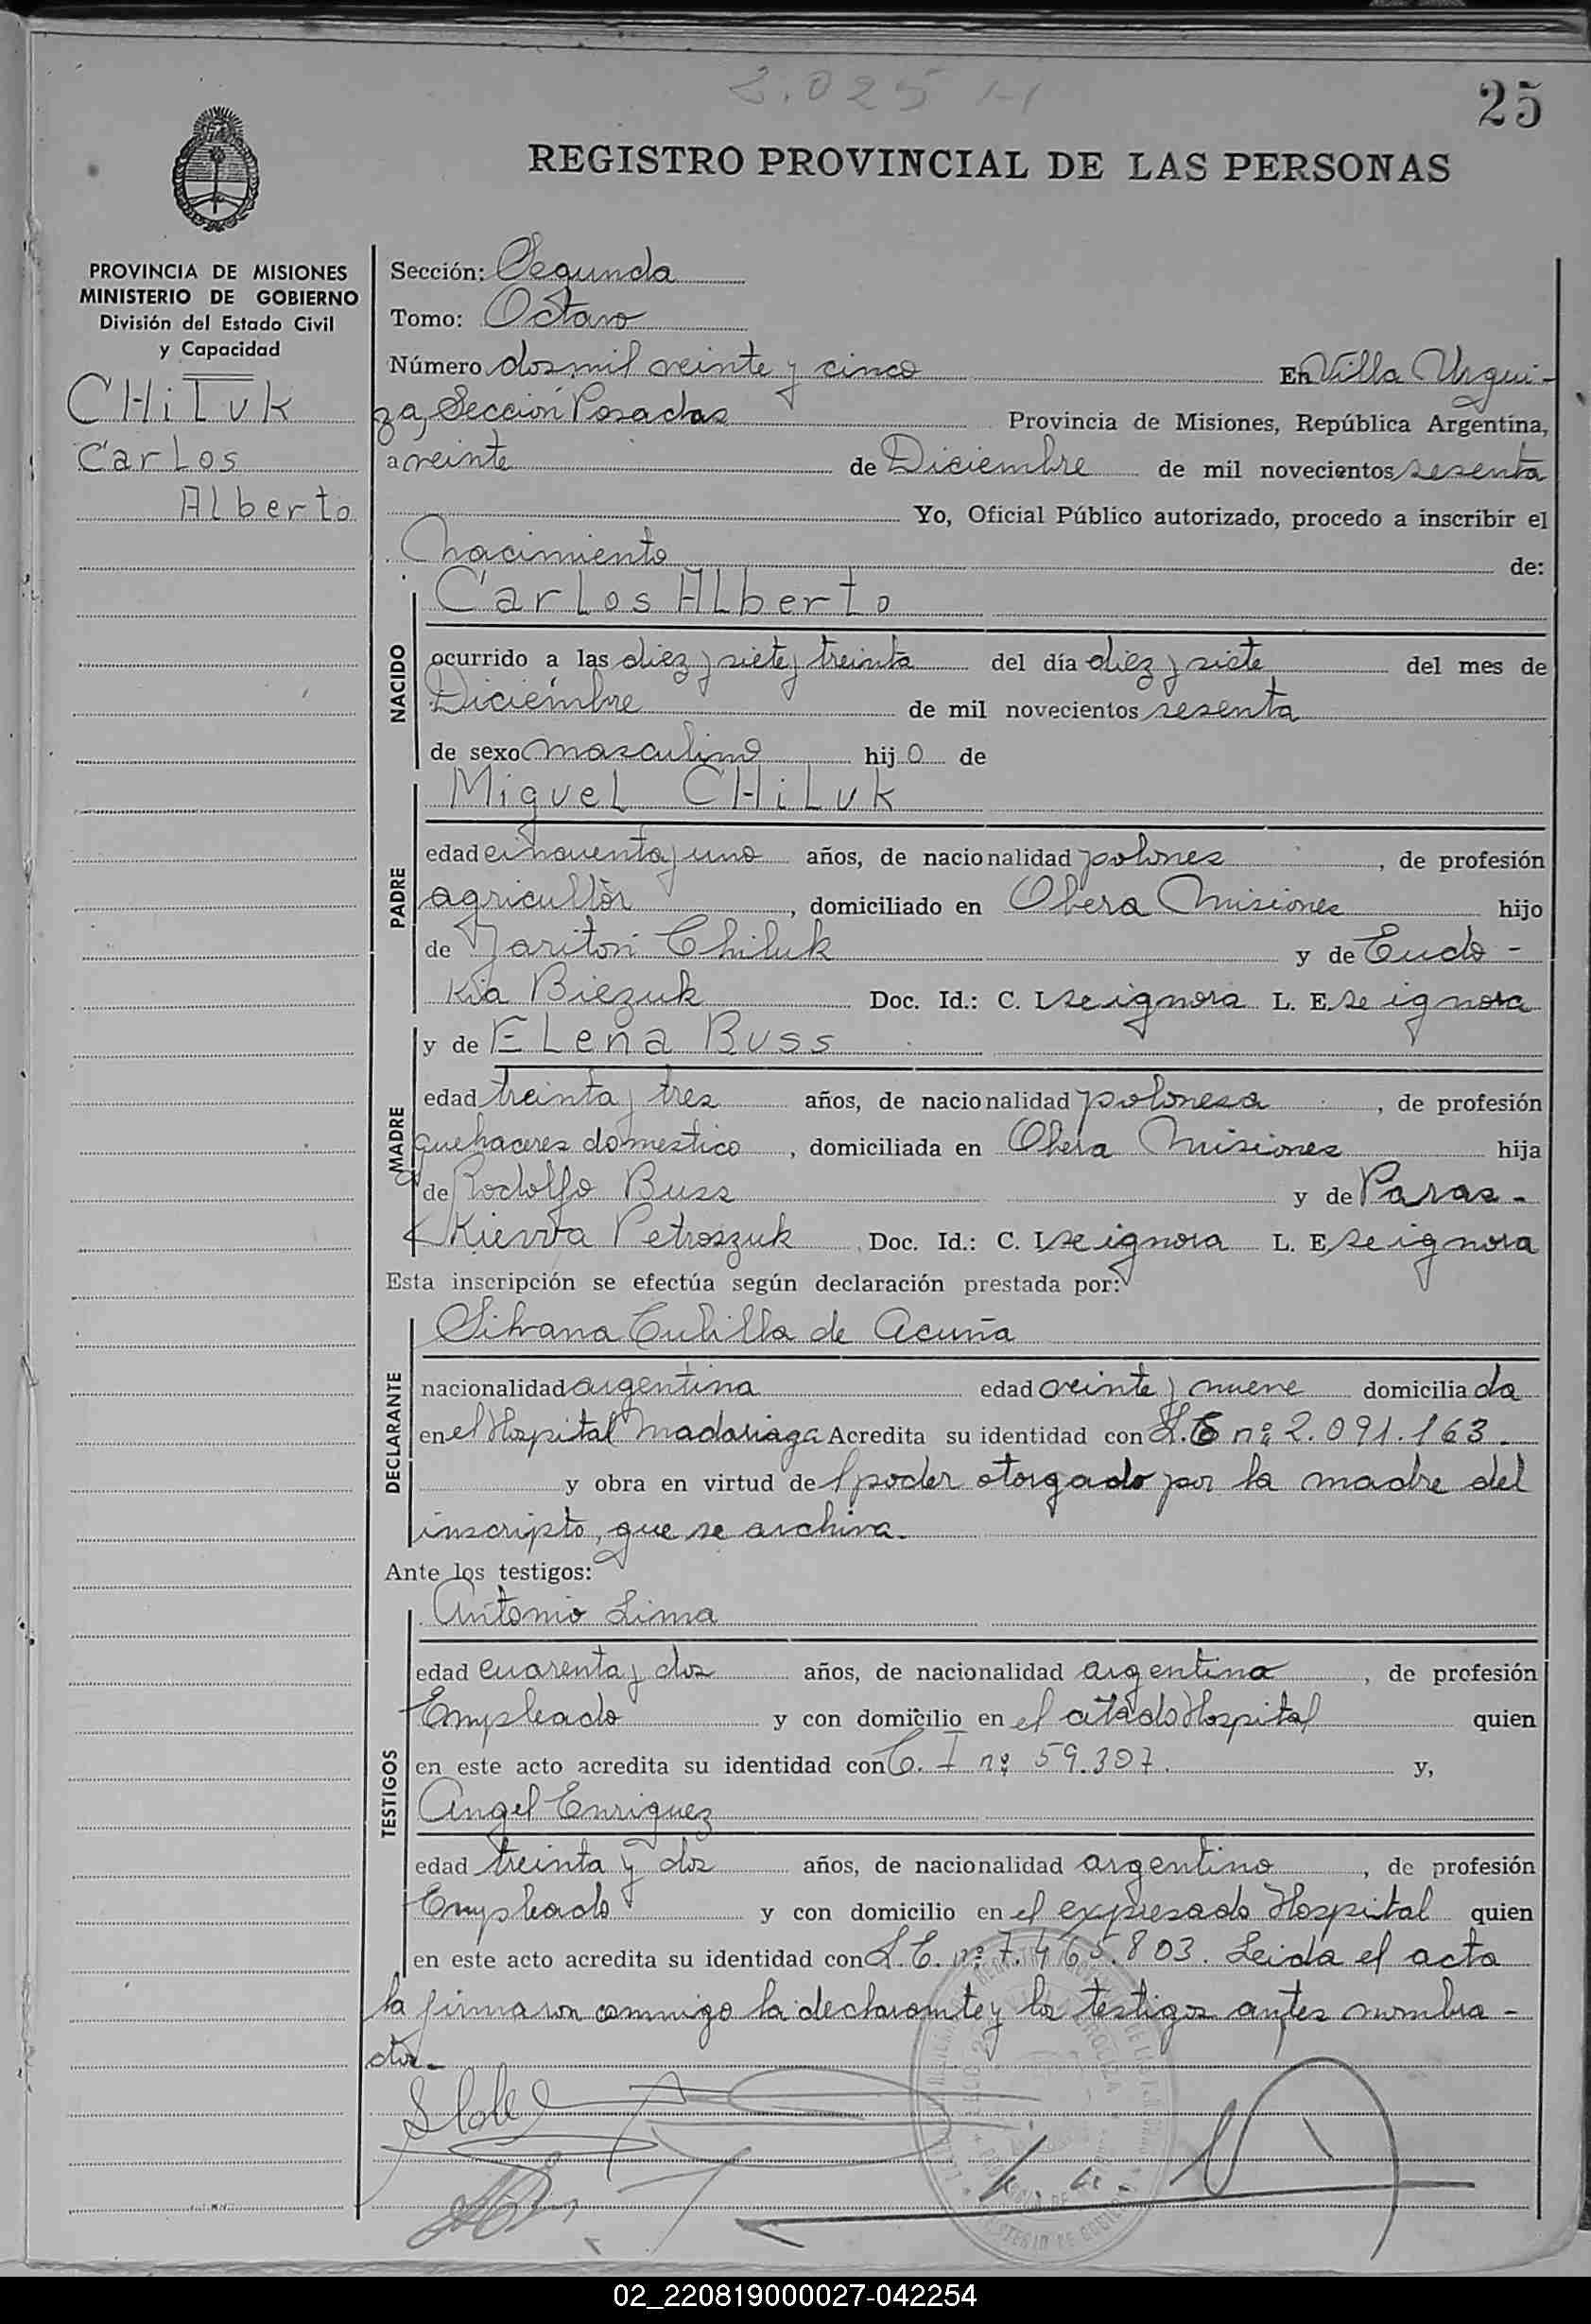 2.025 H
25
REGISTRO PROVINCIAL DE LAS PERSONAS
PROVINCIA DE MISIONES
MINISTERIO DE GOBIERNO
División del Estado Civil
y Capacidad
CHiLuK
Carlos
Alberto
Sección: Segunda
Tomo: Octavo
Número dos mil veinte y cinco En Villa Urqui-
za, Sección Posadas Provincia de Misiones, República Argentina,
a veinte de Diciembre de mil novecientos sesenta
Yo, Oficial Público autorizado, procedo a inscribir el
Nacimiento de:
NACIDO
Carlos Alberto
ocurrido a las diez y siete y treinta del día diez y siete del mes de
Diciembre de mil novecientos sesenta
de sexo masculino hijo de
PADRE
Miguel CHiLuK
edad cincuenta y uno años, de nacionalidad polones, de profesión
agricultor, domiciliado en Obera Misiones hijo
de Jariton Chiluk y de Eudo-
kia Biezuk Doc. Id.: C. I. se ignora L. E. se ignora
MADRE
y de ELena Buss
edad treinta y tres años, de nacionalidad polonesa, de profesión
quehaceres domestico, domiciliada en Obera Misiones hija
de Rodolfo Buss y de Paras-
Kievva Petroszuk Doc. Id.: C. I. se ignora L. E. se ignora
Esta inscripción se efectúa según declaración prestada por:
DECLARANTE
Silvana Cubilla de Acuña
nacionalidad argentina edad veinte y nueve domiciliada
en el Hospital Madariaga Acredita su identidad con L.C nº 2.091.163.
y obra en virtud del poder otorgado por la madre del
inscripto, que se archiva.
Ante los testigos:
TESTIGOS
Antonio Lima
edad cuarenta y dos años, de nacionalidad argentina, de profesión
Empleado y con domicilio en el citado Hospital quien
en este acto acredita su identidad con C. I nº 59.307. y,
Angel Enriquez
edad treinta y dos años, de nacionalidad argentino, de profesión
Empleado y con domicilio en el expresado Hospital quien
en este acto acredita su identidad con L.E. nº 7.465.803. Leida el acta
la firmaron conmigo la declarante y los testigos antes nombra-
dos.-
02_220819000027-042254